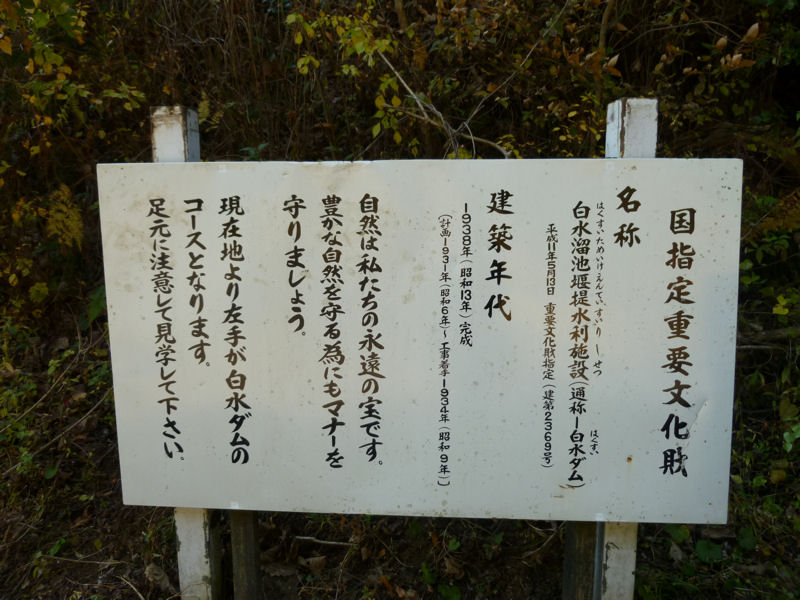 国指定重要文化財
名称
白水溜池堰提水利施設（通称ー白水ダム）
はくすいためいけえんていすいりしせつ
はくすい
平成11年5月13日 重要文化財指定（建第2369号）
建築年代
1938年（昭和13年）完成
（計画1931年（昭和6年）〜工事着手1934年（昭和9年）〕
自然は私たちの永遠の宝です。
豊かな自然を守る為にもマナーを
守りましょう。
現在地より左手が白水ダムの
コースとなります。
足元に注意して見学して下さい。